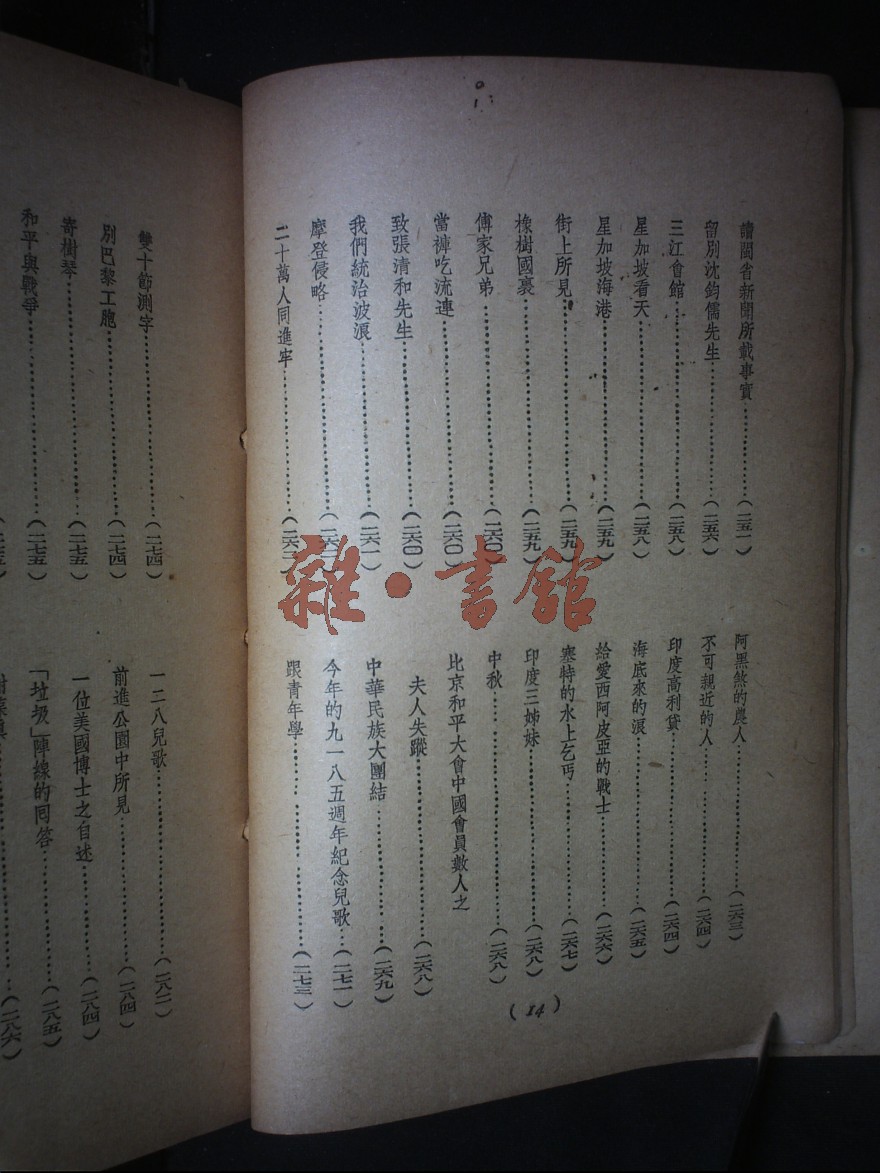 讀閩省新聞所載事實……(二五一)
留別沈鈞儒先生……(二五六)
三江會館……(二五八)
星加坡看天……(二五八)
星加坡海港……(二五九)
街上所見……(二五九)
橡樹國裹……(二五九)
傅家兄弟……(二六〇)
當褲吃流連……(二六〇)
致張清和先生……(二六〇)
我們統治波浪……(二六一)
摩登侵略……(二六
二十萬人同進牢……(二六二)
阿黑煞的農人……(二六三)
不可親近的人……(二六四)
印度高利貸……(二六四)
海底來的淚……(二六五)
給愛西阿皮亞的戰士……(二六六)
塞特的水上乞丐……(二六七)
印度三姊妹……(二六八)
中秋……(二六八)
比京和平大會中國會員數人之
夫人失蹤……(二六八)
中華民族大團結……(二六九)
今年的九一八五週年紀念兒歌…(二七一)
跟青年學……(二七三)
(84)
雜·書館
雙十節測字……(二七四)
別巴黎工胞……(二七四)
寄樹琴……(二七五)
和平與戰爭……(二七五)
一二八兒歌……(二八二)
前進公園中所見……(二八四)
一位美國博士之自述……(二八四)
「垃圾」陣線的回答……(二八五)
(二八六)